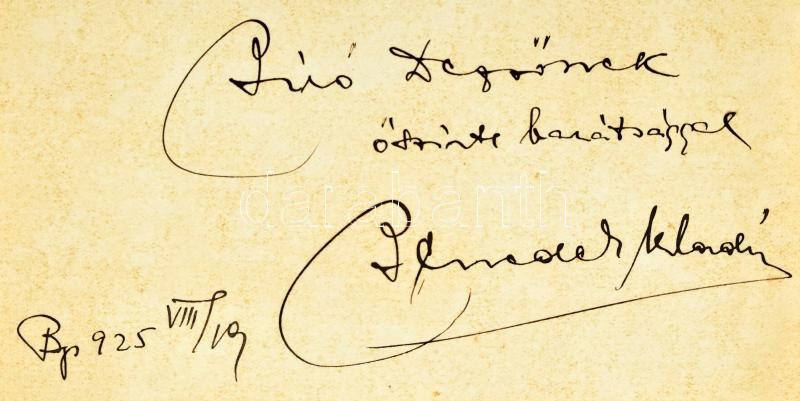 Bíró Dezsőnek
őszinte barátsággal
darabanth
Benedek Aladár
Bp 925 VIII/19